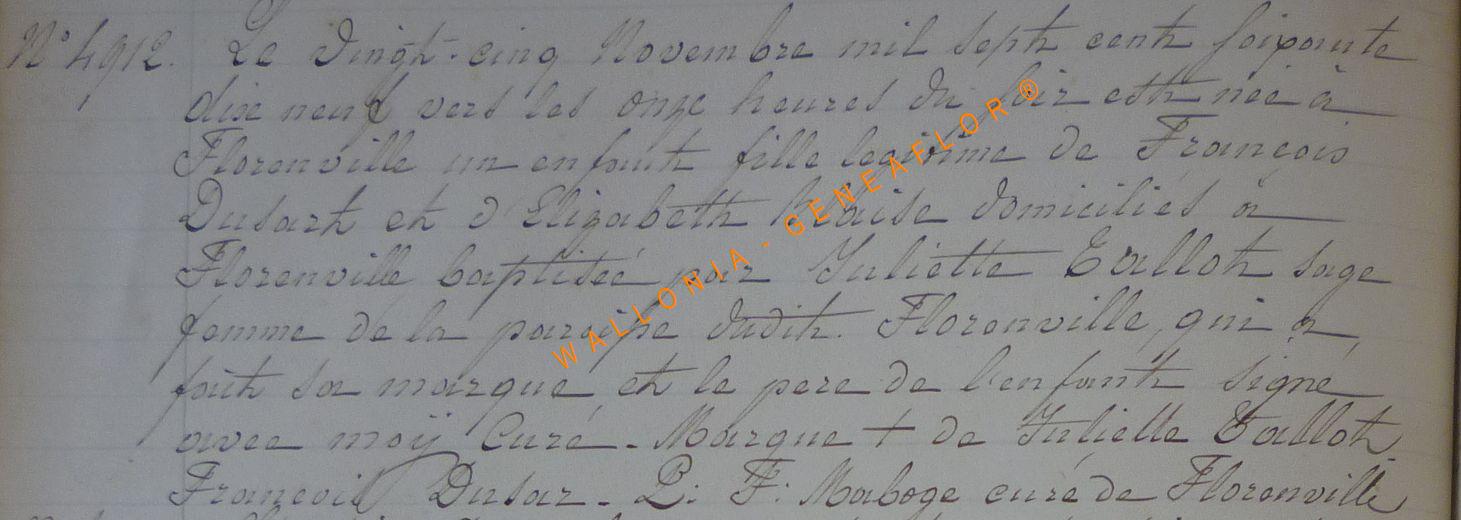 N° 4912. Le vingt-cinq Novembre mil sept cent soixante
dix neuf vers les onze heures du soir est née à
Florenville un enfant fille legitime de François
Dusart et d'Elizabeth Blaise domiciliés à
Florenville baptisée par Juliette Tallot sage
femme de la paroisse dudit. Florenville, qui a
fait sa marque, et le pere de l'enfant signé
avec moÿ Curé - Marque + de Juliette Tallot
François Dusar - P. F. Maboge curé de Florenville
WALLONIA - GENEAFLOR ®